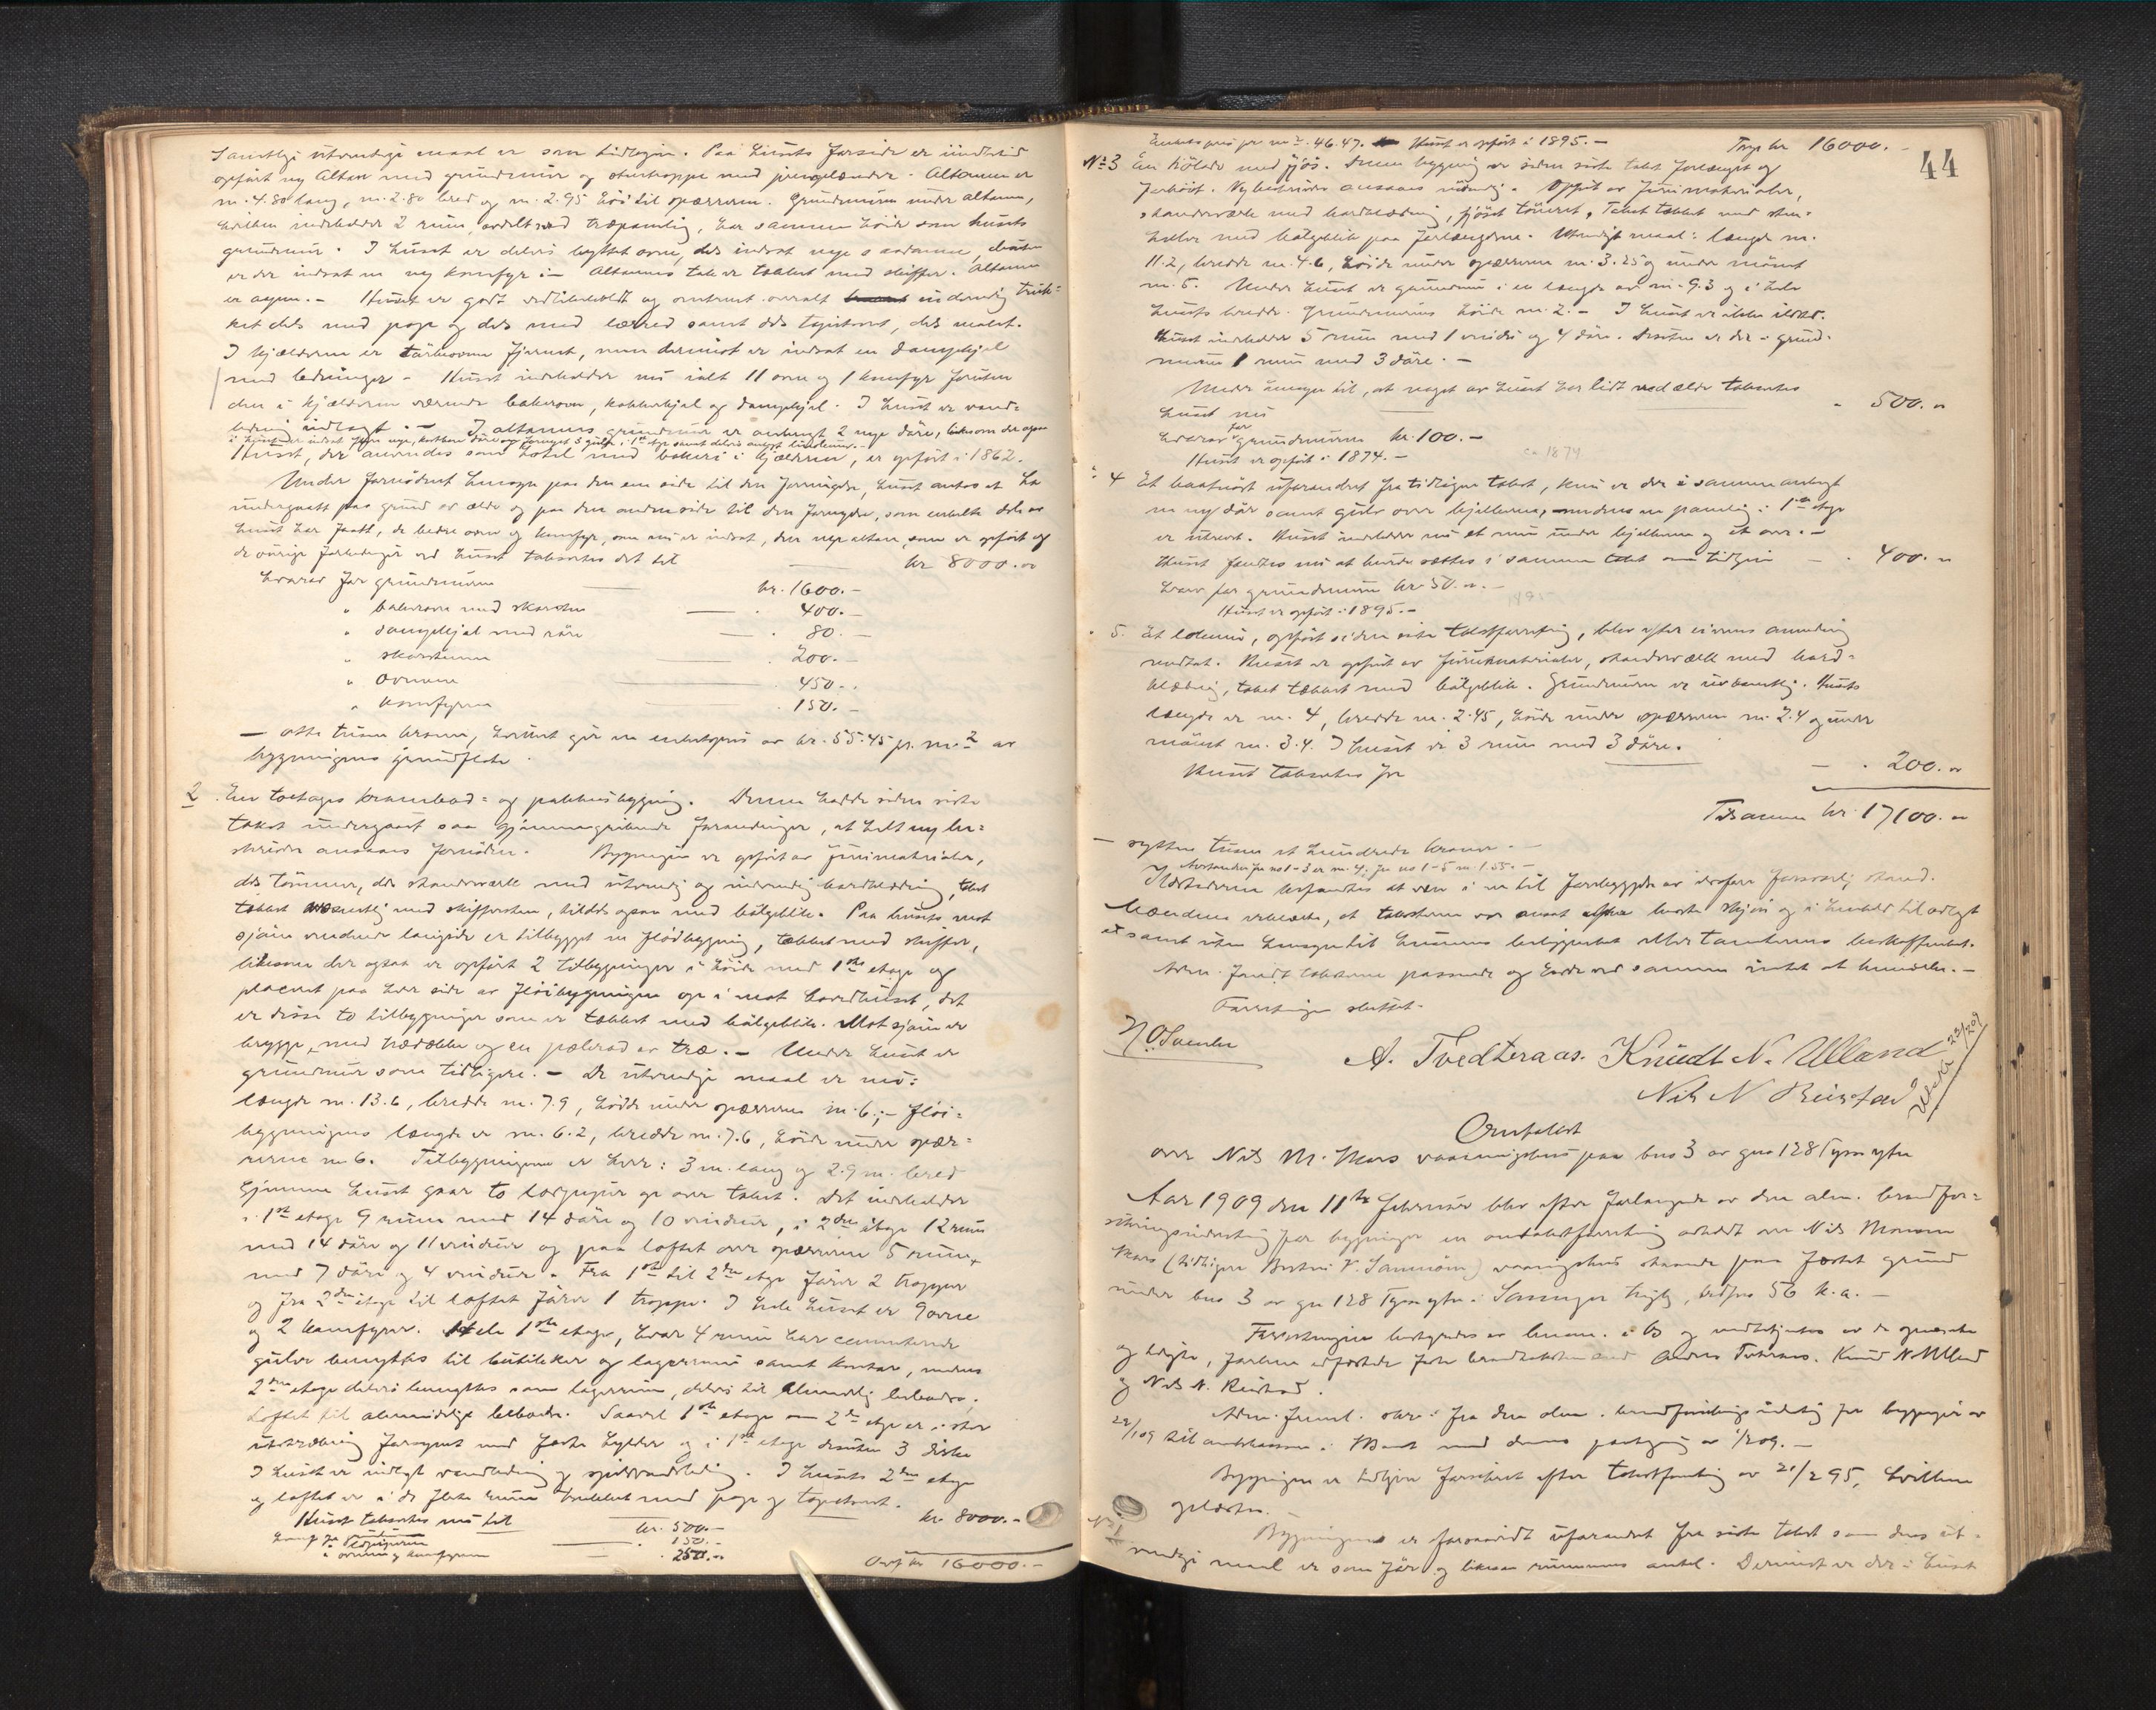 Samtlige utvendige maal er som tidligere. Paa husets forside er imidlertid
opført ny Altan med grundmur og stentrappe med jerngelænder. Altanen er
m. 4.80 lang, m. 2.80 bred og m. 2.95 høi til spærrene. Grundmuren under altanen,
hvilken indeholder 2 rum, avdelt ved træpaneling, har samme høide som husets
grundmur. I huset er delvis byttet ovne, dels indsat nye saadanne, desuten
er der indsat en ny komfyr. Altanens tak er tækket med skiffer. Altanen
er aapen. – Huset er godt vedlikeholdt og omtrent overalt indvendig truk-
ket dels med pap og dels med lærred samt dels tapetseret, dels malet.
I kjælderen er fjernet, men derimot er indsat en dampkjel
med ledninger – Huset indeholder nu ialt 11 ovne og 1 komfyr foruten
den i kjælderen værende bakerovn, kobberkjel og dampkjel. I huset er vand-
ledning indlagt. – I altanens grundmur er anbragt 2 nye døre, likesom der ogsaa
i huset er indsat nye, døre og fornyet 3 gulve i 1ste etage samt delvis
Huset, der anvendes som hotel med bakeri i kjælderen, er opført i 1862.
Under fornødent hensyn paa den ene side til den forringelse, huset antas at ha
undergaatt paa grund av ælde og paa den anden side til den fornyelse, som enkelte dele av
huset har faatt, de bedre ovne og komfyr, som nu er indsat, den nye altan, som er opført og
de øvrige forbedringer ved huset taksertes det til kr 8000.00
hvorav for grundmuren kr. 1600. –
" bakerovn med skorsten 400. –
" dampkjel med rør 80. –
" skorstenene 200. –
" ovnene 450. –
" komfyrene 150. –
– otte tusen kroner, hvilket gir en enhetspris av kr. 55.45 pr. m.2 av
bygningens grundflate.
2. En toetages krambod- og pakhusbygning. Denne hadde siden siste
takst undergaatt saa gjennemgribende forandringer, at helt ny be-
skrivelse ansaaes fornøden. Bygningen er opført av furumaterialer,
dels tømmer, dels standerværk med utvendig og indvendig bordklædning, taket
tækket væsentlig med skiffersten, tildels ogsaa med bølgeblik. Paa husets mot
sjøen vendende langside er tilbygget en fløibygning, tækket med skiffer,
likesom der ogsaa er opført 2 tilbygninger i høide med 1ste etage og
placeret paa hver side av fløibygningen op i mot hovedhuset, det
er disse to tilbygninger som er tækket med bølgeblik. Mot sjøen er
brygge, med trædække og en pælerad av træ. – Under huset er
grundmur som tidligere. – De utvendige maal er nu:
længde m. 13.6, bredde m. 7.9, høide under spærrene m. 6; – fløi-
bygningens længde er m. 6.2, bredde m. 7.6, høide under spær-
rene m 6. Tilbygningene er hver: 3 m. lang og 2.9 m. bred
Gjennem huset gaar to op over taket. Det indeholder
i 1ste etage 9 rum med 14 døre og 10 vinduer, i 2den etage 12 rum
med 14 døre og 11 vinduer og paa loftet over spærrene 5 rum,
med 7 døre og 4 vinduer. Fra 1ste til 2den etage fører 2 trapper
og fra 2den etage til loftet fører 1 trappe. I hele huset er 9 ovne
og 2 komfyrer. Hele 1ste etage, hvor 4 rum har cementerede
gulve benyttes til butikker og lagerrum samt kontor, mens
2den etage delvis benyttes som lagerrum, delvis til almindelig beboelse.
Loftet til almindelige beboelse. Saavel 1ste etage som 2den etage er i stor
utstrækning forsynet med faste hylder og i 1ste etage desuten 3 diske
I huset er indlagt vandledning og spildevandsledning. I husets 2den etage
og loftet er i de fleste rum trukket med pap og tapetseret.
Huset taksertes nu til kr 8000. –
kr. 500. –
150. –
" ovnene og komfyrene 250. –
Overf kr 16000. –
44
Enhetspris pr m2 46.47. Huset er opført i 1895. – Trsp kr 16000. –
No 3 En høilade med fjøs. Denne bygning er siden siste takst forlænget og
forhøiet. Ny beskrivelse ansaaes nødvendig. Opført av furumaterialer,
standerværk med bordklædning, fjøset tømret. Taket tækket med sten-
heller med bølgeblik paa forlængelsen. Utvendig maal: længde m.
11.2, bredde m. 4.6, høide under spærrene m. 3.25 og under mønet
m. 5. Under huset er grundmur i en længde av m. 9.3 og i hele
husets bredde. Grundmurens høide m. 2. – I huset er ikke ildsted.
Huset indeholder 5 rum med 1 vindu og 4 døre. Desuten er der i grund-
muren 1 rum med 3 døre. –
Under hensyn til, at noget av huset har lidt ved ælde taksertes
huset nu " 500. "
hvorav for grundmuren kr. 100. –
Huset er opført i 1874. – ca 1874
" 4 Et baatnøst uforandret fra tidligere takst, kun er der i samme anbragt
en ny dør samt gulv over bjelkerne, mens en paneling i 1ste etage
er utrevet. Huset indeholder nu et rum under bjelkerne og et over. –
Huset fandtes nu at burde ansættes i samme takst som tidligere – " 400. "
hvorav for grundmuren kr 50. ". –
Huset er opført i 1895. –
" 5. Et lokum, opført siden siste takstforretning, blev efter eierens anmodning
medtat. Huset er opført av furumaterialer, standerværk med bord-
klædning, taket tækket med bølgeblik. Grundmuren er ubetydelig. Husets
længde er m. 4, bredde m. 2.45, høide under spærrene m. 2.4 og under
mønet m. 3.4. I huset er 3 rum med 3 døre.
Huset taksertes for – " 200. "
Tilsammen kr. 17100. "
– sytten tusen et hundrede kroner –
Avstanden fra no 1–3 er m. 4; fra no 1–5 m. 1.55. –
Ildstederne befandtes at være i en til forebyggelse av ildsfare forsvarlig stand.
Mændene erklærte, at taksterne var ansat efter beste skjøn og i henhold til avlagt
ed samt uten hensyn til husenes beliggenhet eller tomternes beskaffenhet.
Adm. fandt taksterne passende og hadde ved samme intet at bemerke. –
Forretningen sluttet.
A. Tvedteraas. Knudt N. Ulland
Nils N Reirstad
Omtakst
over Nils M. Mos vaaningshus paa bno 3 av gno 128 Tysse ytre
Aar 1909 den 11te februar blev efter forlangende av den alm. brandfor-
sikringsindretning for bygninger en omtakstforretning avholdt over Nils Monsen
Mos (tidligere) vaaningshus staaende paa fæstet grund
under bno 3 av gno 128 Tysse ytre i Samnanger tinglag, 56 k.a. –
Forretningen bestyredes av lensm. i Os og medbetjentes av de opnævnte
og edfæstede faste brandtakstmænd Anders Tvedteraas, Knud N. Ulland
og Nils N. Reirstad.
Adm. fremla skr. fra den alm. brandforsikringsindretning for bygninger av
22/1 09 til amtskassereren i med dennes paategning av 1/2 09. –
Bygningen er tidligere forsikret efter takstforretning av 21/2 95, hvilken
oplæstes.
Bygningen er forsaavidt uforandret fra siste takst som dens ut-
vendige maal er som før og likesaa rummenes antal. Derimot er der i huset